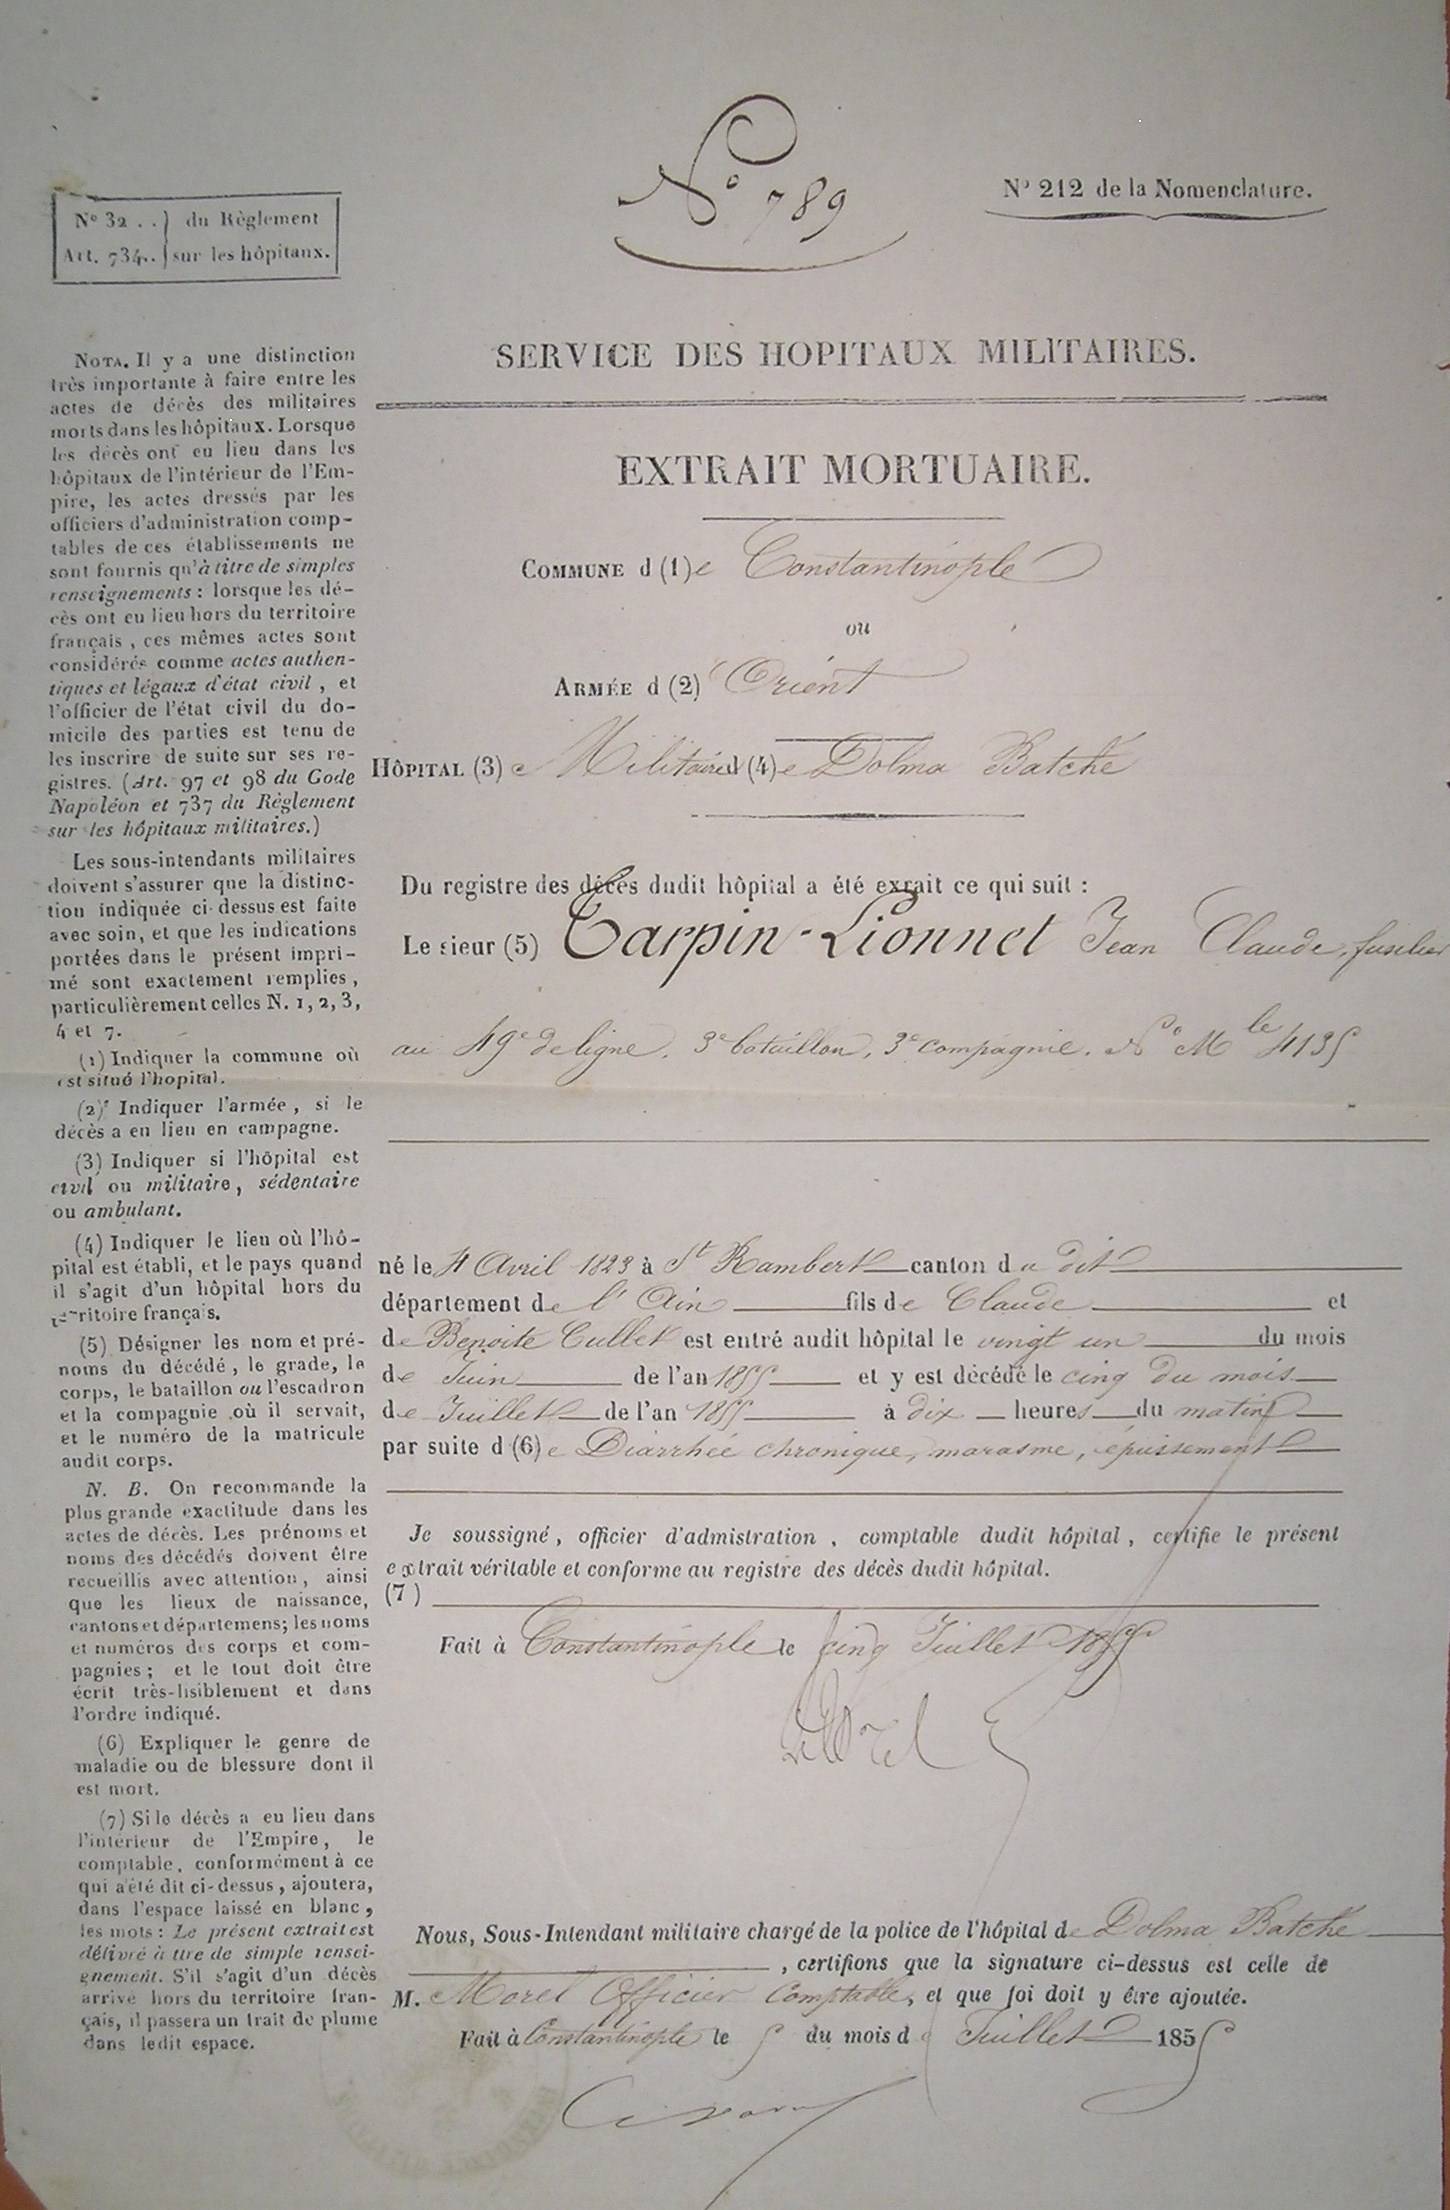 N° 789
N° 212 de la Nomenclature.
N° 32 . . } du Règlement
Art. 734.. } sur les hôpitaux.
SERVICE DES HOPITAUX MILITAIRES.
EXTRAIT MORTUAIRE.
COMMUNE d (1) e Constantinople
ou
ARMÉE d (2) 'Orient
HÔPITAL (3) e Militaire d (4) e Dolma Batché
Du registre des décès dudit hôpital a été exrait ce qui suit :
Le sieur (5) Carpin-Lionnet Jean Claude, fusilier
au 49e de ligne, 3e bataillon, 3e compagnie. N° Mle 4135
né le 4 Avril 1823 à St Rambert canton du dit
département de l'Ain fils de Claude et
de Benoite Cullet est entré audit hôpital le vingt un du mois
de Juin de l'an 1855 et y est décédé le cinq du mois
de Juillet de l'an 1855 à dix heures du matin
par suite d (6) e Diarrhée chronique, marasme, épuisement
Je soussigné, officier d'admistration, comptable dudit hôpital, certifie le présent
extrait véritable et conforme au registre des décès dudit hôpital.
(7)
Fait à Constantinople le cinq Juillet 1855
Nous, Sous-Intendant militaire chargé de la police de l'hôpital de Dolma Batché
, certifions que la signature ci-dessus est celle de
M. Morel Officier Comptable, et que foi doit y être ajoutée.
Fait à Constantinople le 5 du mois de Juillet 1855
NOTA. Il y a une distinction
très importante à faire entre les
actes de décès des militaires
morts dans les hôpitaux. Lorsque
les décès ont eu lieu dans les
hôpitaux de l'intérieur de l'Em-
pire, les actes dressés par les
officiers d'administration comp-
tables de ces établissements ne
sont fournis qu'à titre de simples
renseignements : lorsque les dé-
cès ont eu lieu hors du territoire
français, ces mêmes actes sont
considérés comme actes authen-
tiques et légaux d'état civil, et
l'officier de l'état civil du do-
micile des parties est tenu de
les inscrire de suite sur ses re-
gistres. (Art. 97 et 98 du Gode
Napoléon et 737 du Règlement
sur les hôpitaux militaires.)
Les sous-intendants militaires
doivent s'assurer que la distinc-
tion indiquée ci-dessus est faite
avec soin, et que les indications
portées dans le présent impri-
mé sont exactement remplies,
particulièrement celles N. 1, 2, 3,
4 et 7.
(1) Indiquer la commune où
est situé l'hopital.
(2) Indiquer l'armée, si le
décès a en lieu en campagne.
(3) Indiquer si l'hôpital est
civil ou militaire, sédentaire
ou ambulant.
(4) Indiquer le lieu où l'hô-
pital est établi, et le pays quand
il s'agit d'un hôpital hors du
territoire français.
(5) Désigner les nom et pré-
noms du décédé, le grade, le
corps, le bataillon ou l'escadron
et la compagnie où il servait,
et le numéro de la matricule
audit corps.
N. B. On recommande la
plus grande exactitude dans les
actes de décès. Les prénoms et
noms des décédés doivent être
recueillis avec attention, ainsi
que les lieux de naissance,
cantons et départemens; les noms
et numéros des corps et com-
pagnies; et le tout doit être
écrit très-lisiblement et dans
l'ordre indiqué.
(6) Expliquer le genre de
maladie ou de blessure dont il
est mort.
(7) Si le décès a eu lieu dans
l'intérieur de l'Empire, le
comptable, conformément à ce
qui a été dit ci-dessus, ajoutera,
dans l'espace laissé en blanc,
les mots : Le présent extrait est
délivré à titre de simple rensei-
gnement. S'il s'agit d'un décès
arrivé hors du territoire fran-
çais, il passera un trait de plume
dans ledit espace.